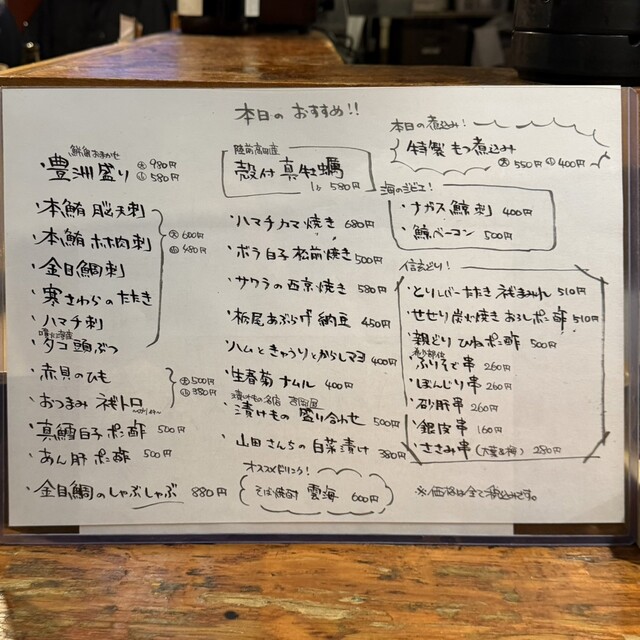 本日のおすすめ!!
鮮魚おまかせ
・豊洲盛り 大 980円 小 580円
・本鮪 脳天刺
・本鮪 ホホ肉刺
・金目鯛刺
・寒さわらのたたき
・ハマチ刺
・タコ頭ぶつ
大 600円
小 480円
・赤貝のひも
・おつまみ ネギトロ
大 500円
小 380円
・真鱈白子 ポン酢 500円
・あん肝 ポン酢 500円
・金目鯛のしゃぶしゃぶ 880円
陸前高田産
殻付 真牡蠣
1ヶ 580円
・ハマチカマ焼き 680円
・ボラ白子 松前焼き 500円
・サワラの西京焼き 580円
・栃尾あぶらげ 納豆 450円
・ハムときゅうりとからしマヨ 400円
・生春菊 ナムル 400円
・漬けもの 盛り合わせ 500円
・山田さんちの白菜漬け 380円
オススメドリンク!
そば焼酎 雲海 600円
本日の煮込み!
特製 もつ煮込み
大 550円 小 400円
海のジビエ!
・ナガス鯨刺 400円
・鯨ベーコン 500円
信玄どり!
・とりレバーたたき ネギまみれ 510円
・せせり炭火焼き おろしポン酢 510円
・親どり ひねポン酢 500円
希少部位
・ふりそで串 260円
・ぼんじり串 260円
・砂肝串 260円
・銀皮串 160円
・ささみ串(大葉&梅) 280円
※価格は全て税込みです。